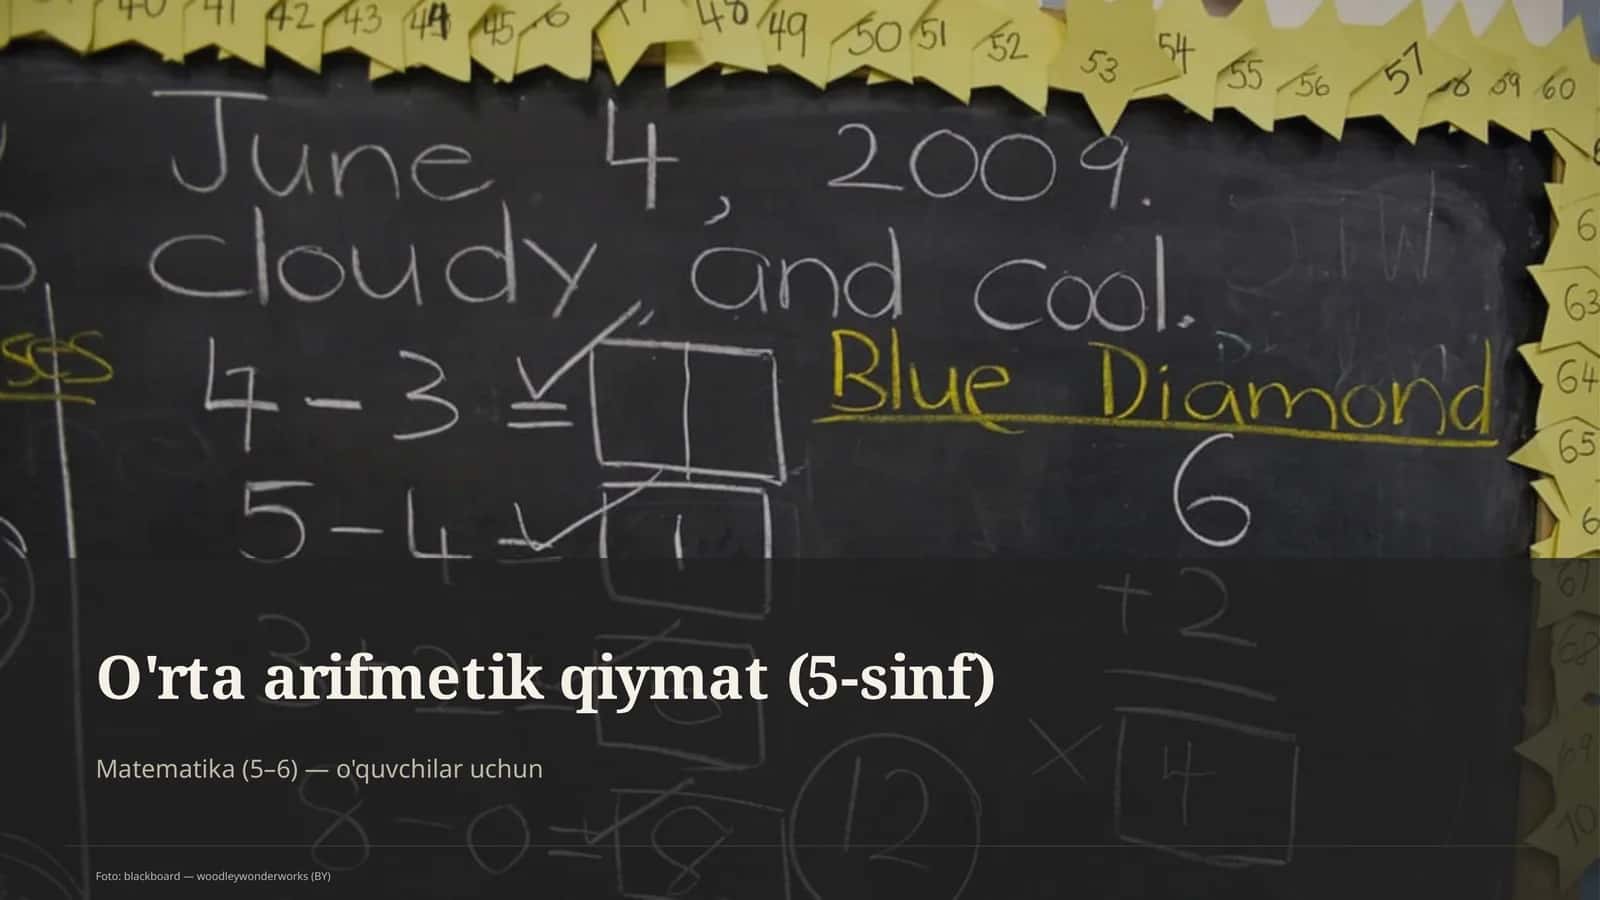 40 41 42 43 44 45 48 49 50 51 52 53 54 55 56 57 58 59 60
June 4, 2009.
cloudy, and cool.
63
ses
4 - 3 = 1
Blue Diamond
64
65
5 - 4 = 1
6
+ 2
67
68
O'rta arifmetik qiymat (5-sinf)
69
4
Matematika (5–6) — o'quvchilar uchun
8 - 0 = 8
12
70
Foto: blackboard — woodleywonderworks (BY)